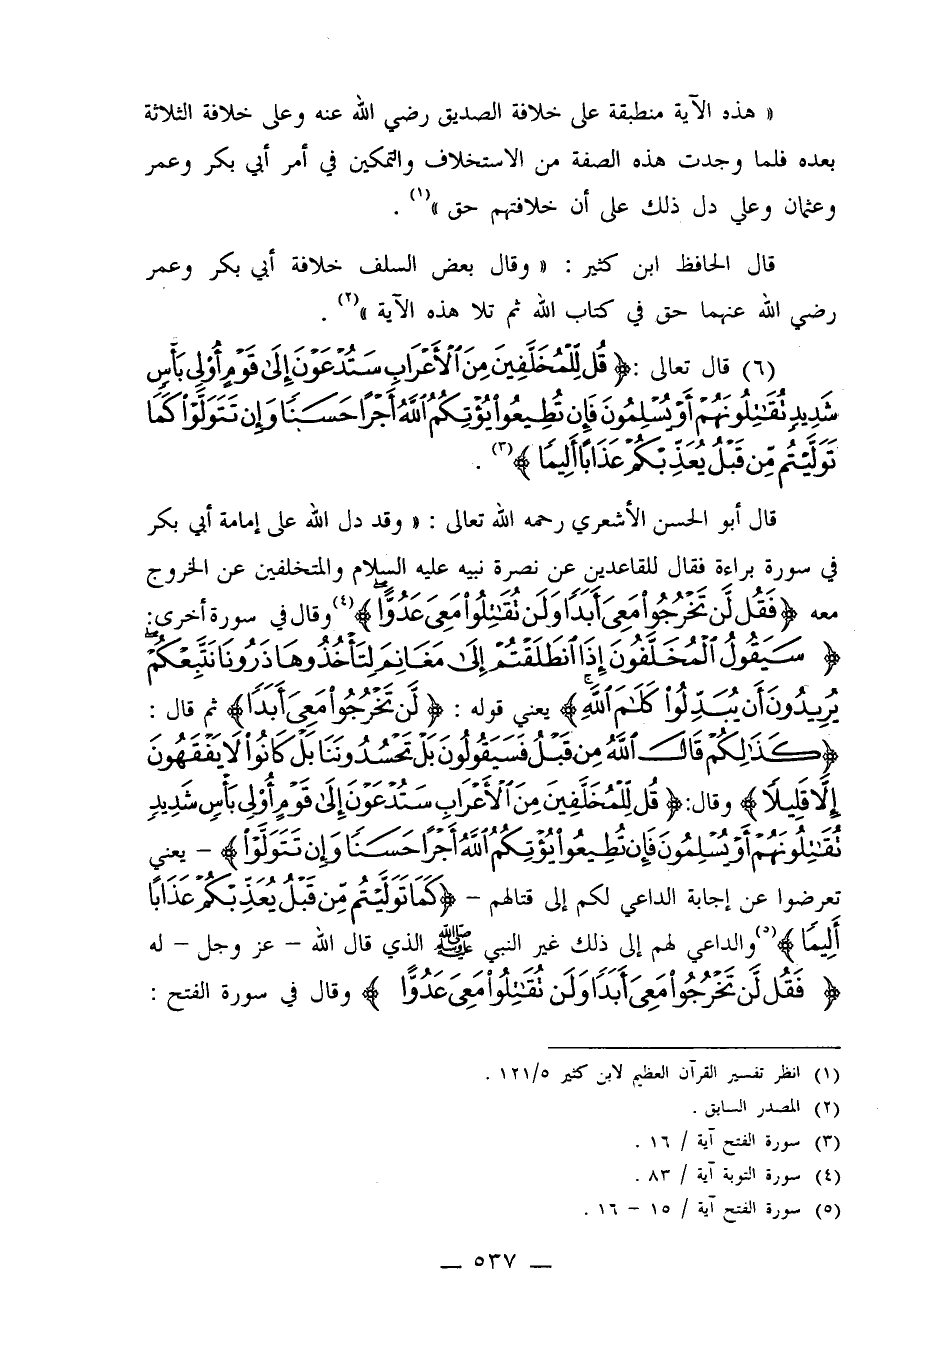 « هذه الآية منطبقة على خلافة الصديق رضي الله عنه وعلى خلافة الثلاثة
بعده فلما وجدت هذه الصفة من الاستخلاف والتمكين في أمر أبي بكر وعمر
وعثمان وعلي دل ذلك على أن خلافتهم حق »(١) .
قال الحافظ ابن كثير : « وقال بعض السلف خلافة أبي بكر وعمر
رضي الله عنهما حق في كتاب الله ثم تلا هذه الآية »(٢) .
(٦) قال تعالى :﴿ قُل لِّلْمُخَلَّفِينَ مِنَ ٱلْأَعْرَابِ سَتُدْعَوْنَ إِلَىٰ قَوْمٍ أُوْلِى بَأْسٍ
شَدِيدٍ تُقَٰتِلُونَهُمْ أَوْ يُسْلِمُونَ فَإِن تُطِيعُوا۟ يُؤْتِكُمُ ٱللَّهُ أَجْرًا حَسَنًا وَإِن تَتَوَلَّوْا۟ كَمَا
تَوَلَّيْتُم مِّن قَبْلُ يُعَذِّبْكُمْ عَذَابًا أَلِيمًا ﴾(٣) .
قال أبو الحسن الأشعري رحمه الله تعالى : « وقد دل الله على إمامة أبي بكر
في سورة براءة فقال للقاعدين عن نصرة نبيه عليه السلام والمتخلفين عن الخروج
معه ﴿ فَقُل لَّن تَخْرُجُوا۟ مَعِىَ أَبَدًا وَلَن تُقَٰتِلُوا۟ مَعِىَ عَدُوًّا ﴾(٤) وقال في سورة أخرى:
﴿ سَيَقُولُ ٱلْمُخَلَّفُونَ إِذَا ٱنطَلَقْتُمْ إِلَىٰ مَغَانِمَ لِتَأْخُذُوهَا ذَرُونَا نَتَّبِعْكُمْ
يُرِيدُونَ أَن يُبَدِّلُوا۟ كَلَٰمَ ٱللَّهِ ﴾ يعني قوله : ﴿ لَّن تَخْرُجُوا۟ مَعِىَ أَبَدًا ﴾ ثم قال :
﴿ كَذَٰلِكُمْ قَالَ ٱللَّهُ مِن قَبْلُ فَسَيَقُولُونَ بَلْ تَحْسُدُونَنَا بَلْ كَانُوا۟ لَا يَفْقَهُونَ
إِلَّا قَلِيلًا ﴾ وقال:﴿ قُل لِّلْمُخَلَّفِينَ مِنَ ٱلْأَعْرَابِ سَتُدْعَوْنَ إِلَىٰ قَوْمٍ أُوْلِى بَأْسٍ شَدِيدٍ
تُقَٰتِلُونَهُمْ أَوْ يُسْلِمُونَ فَإِن تُطِيعُوا۟ يُؤْتِكُمُ ٱللَّهُ أَجْرًا حَسَنًا وَإِن تَتَوَلَّوْا۟ ﴾ – يعني
تعرضوا عن إجابة الداعي لكم إلى قتالهم – ﴿ كَمَا تَوَلَّيْتُم مِّن قَبْلُ يُعَذِّبْكُمْ عَذَابًا
أَلِيمًا ﴾(٥) والداعي لهم إلى ذلك غير النبي ﷺ الذي قال الله – عز وجل – له
﴿ فَقُل لَّن تَخْرُجُوا۟ مَعِىَ أَبَدًا وَلَن تُقَٰتِلُوا۟ مَعِىَ عَدُوًّا ﴾ وقال في سورة الفتح :
(١) انظر تفسير القرآن العظيم لابن كثير ١٢١/٥ .
(٢) المصدر السابق .
(٣) سورة الفتح آية / ١٦ .
(٤) سورة التوبة آية / ٨٣ .
(٥) سورة الفتح آية / ١٥ – ١٦ .
— ٥٣٧ —